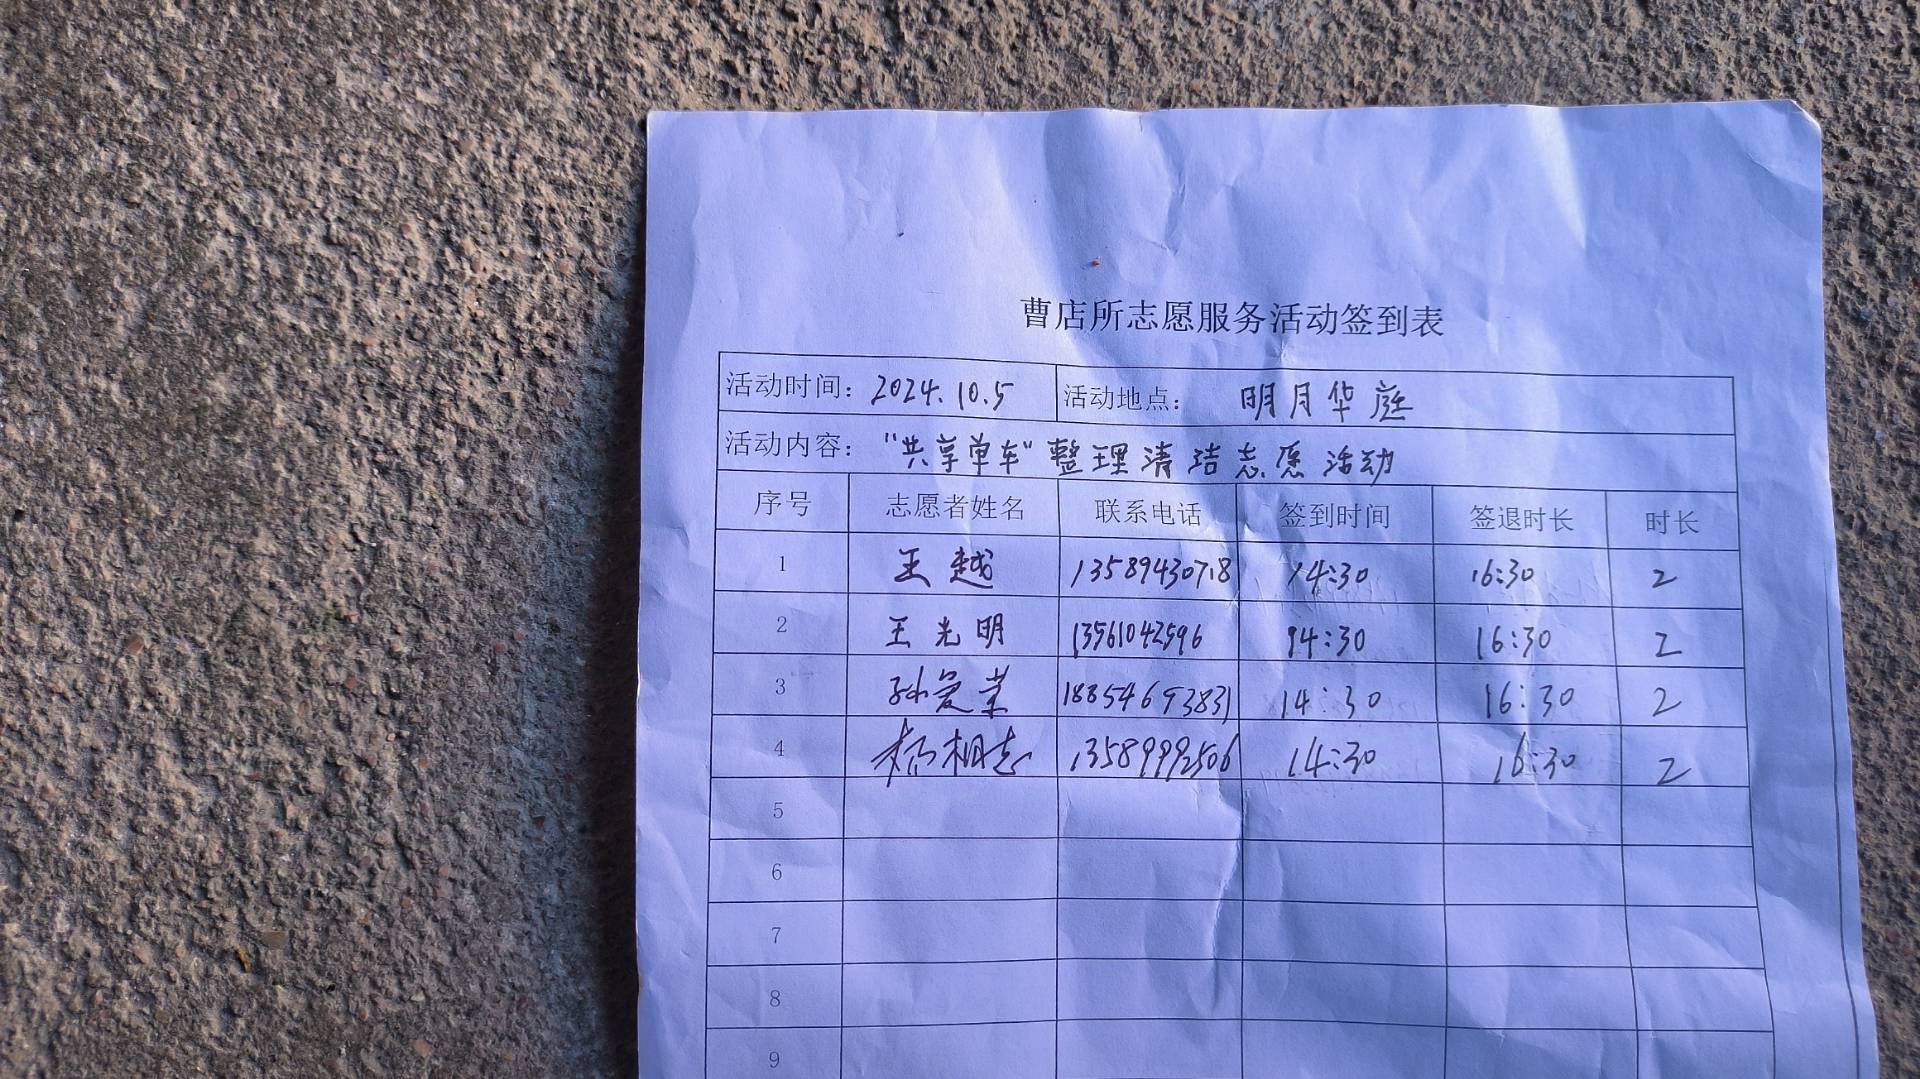 曹店所志愿服务活动签到表
活动时间：2024.10.5 活动地点： 明月华庭
活动内容： “共享单车”整理清洁志愿活动
序号 志愿者姓名 联系电话 签到时间 签退时长 时长
1 王越 13589430718 14:30 16:30 2
2 王光明 13561042596 14:30 16:30 2
3 孙爱荣 18854693831 14:30 16:30 2
4 杨相志 13589992506 14:30 16:30 2
5
6
7
8
9